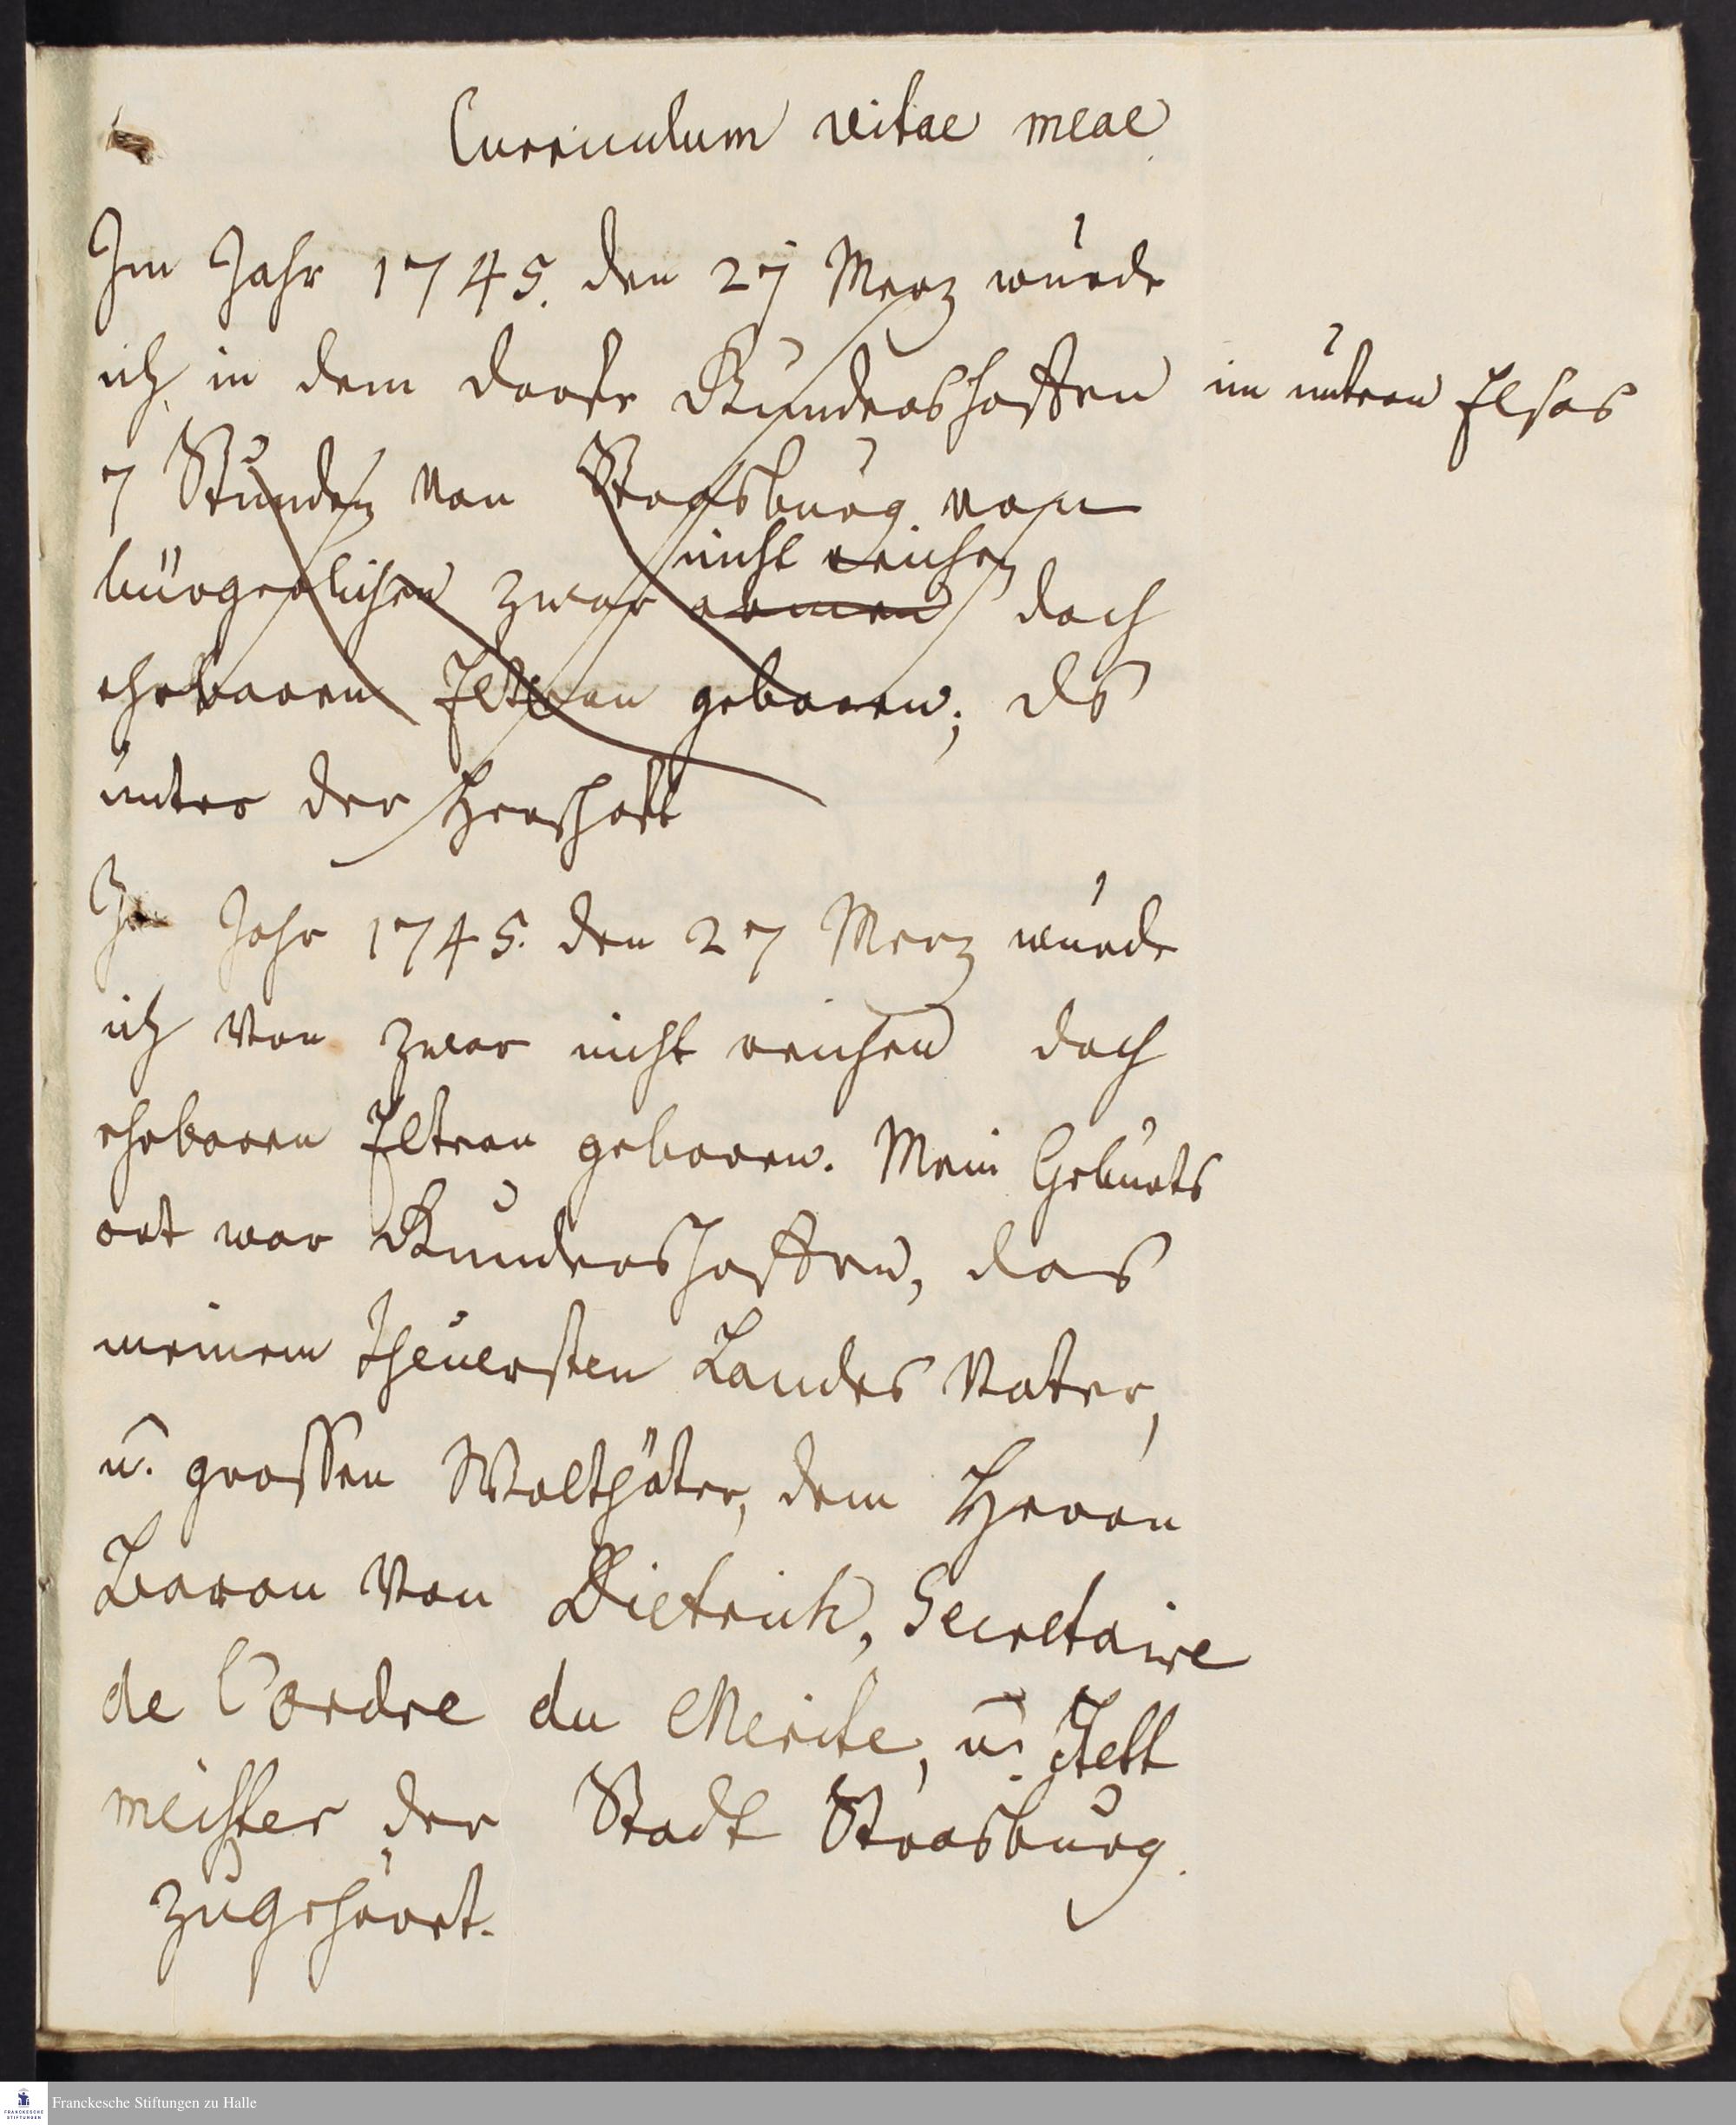 Curriculum vitae meae
Im Jahr 1745. den 27 Merz wurde
ich in dem Dorfe Gundershoffen im untern Elsas
7 Stunden von Strasburg von
nicht reichen
bürgerlichen zwar armen doch
ehrbaren Eltern gebohren; das
unter der Herschaft
Im Jahr 1745. den 27 Merz wurde
ich von zwar nicht reichen doch
ehrbaren Eltern gebohren. Mein Geburts
ort war Gundershoffen, das
meinem theuersten Landes Vater,
u. grossen Wolthäter, dem Herrn
Baron von Dietrich, Secretaire
de l'ordre du Merite, u. Stett
meister der Stadt Strasburg
zugehöret.
Franckesche Stiftungen zu Halle
FRANCKESCHE
STIFTUNGEN